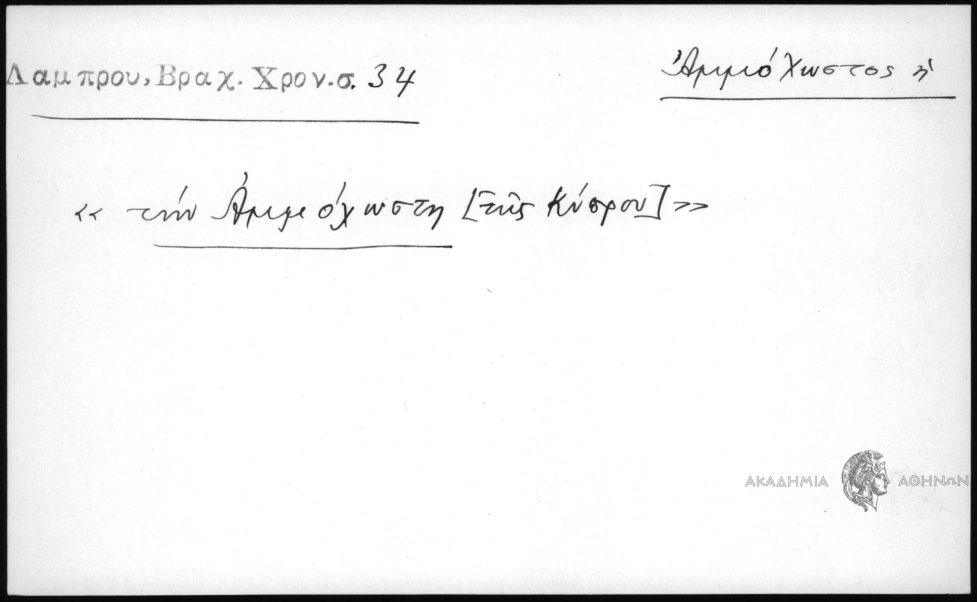 Λαμπρου, Βραχ. Χρον. σ. 34
Ἀμμόχωστος ἡ
«τὴν Ἀμμόχωστη [τῆς Κύπρου]»
ΑΚΑΔΗΜΙΑ ΑΘΗΝΩΝ